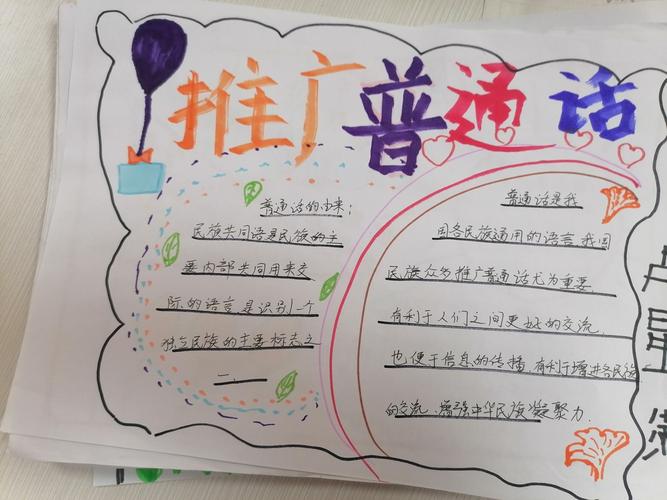 推广普通话
普通话的由来：
民族共同语是民族的主
要内部共同用来交
际的语言是识别一个
独立民族的主要标志之
一.
普通话是我
国各民族通用的语言我国
民族众多推广普通话尤为重要
有利于人们之间更好的交流
也便于信息的传播有利于增进各民族
的交流，增强中华民族凝聚力.